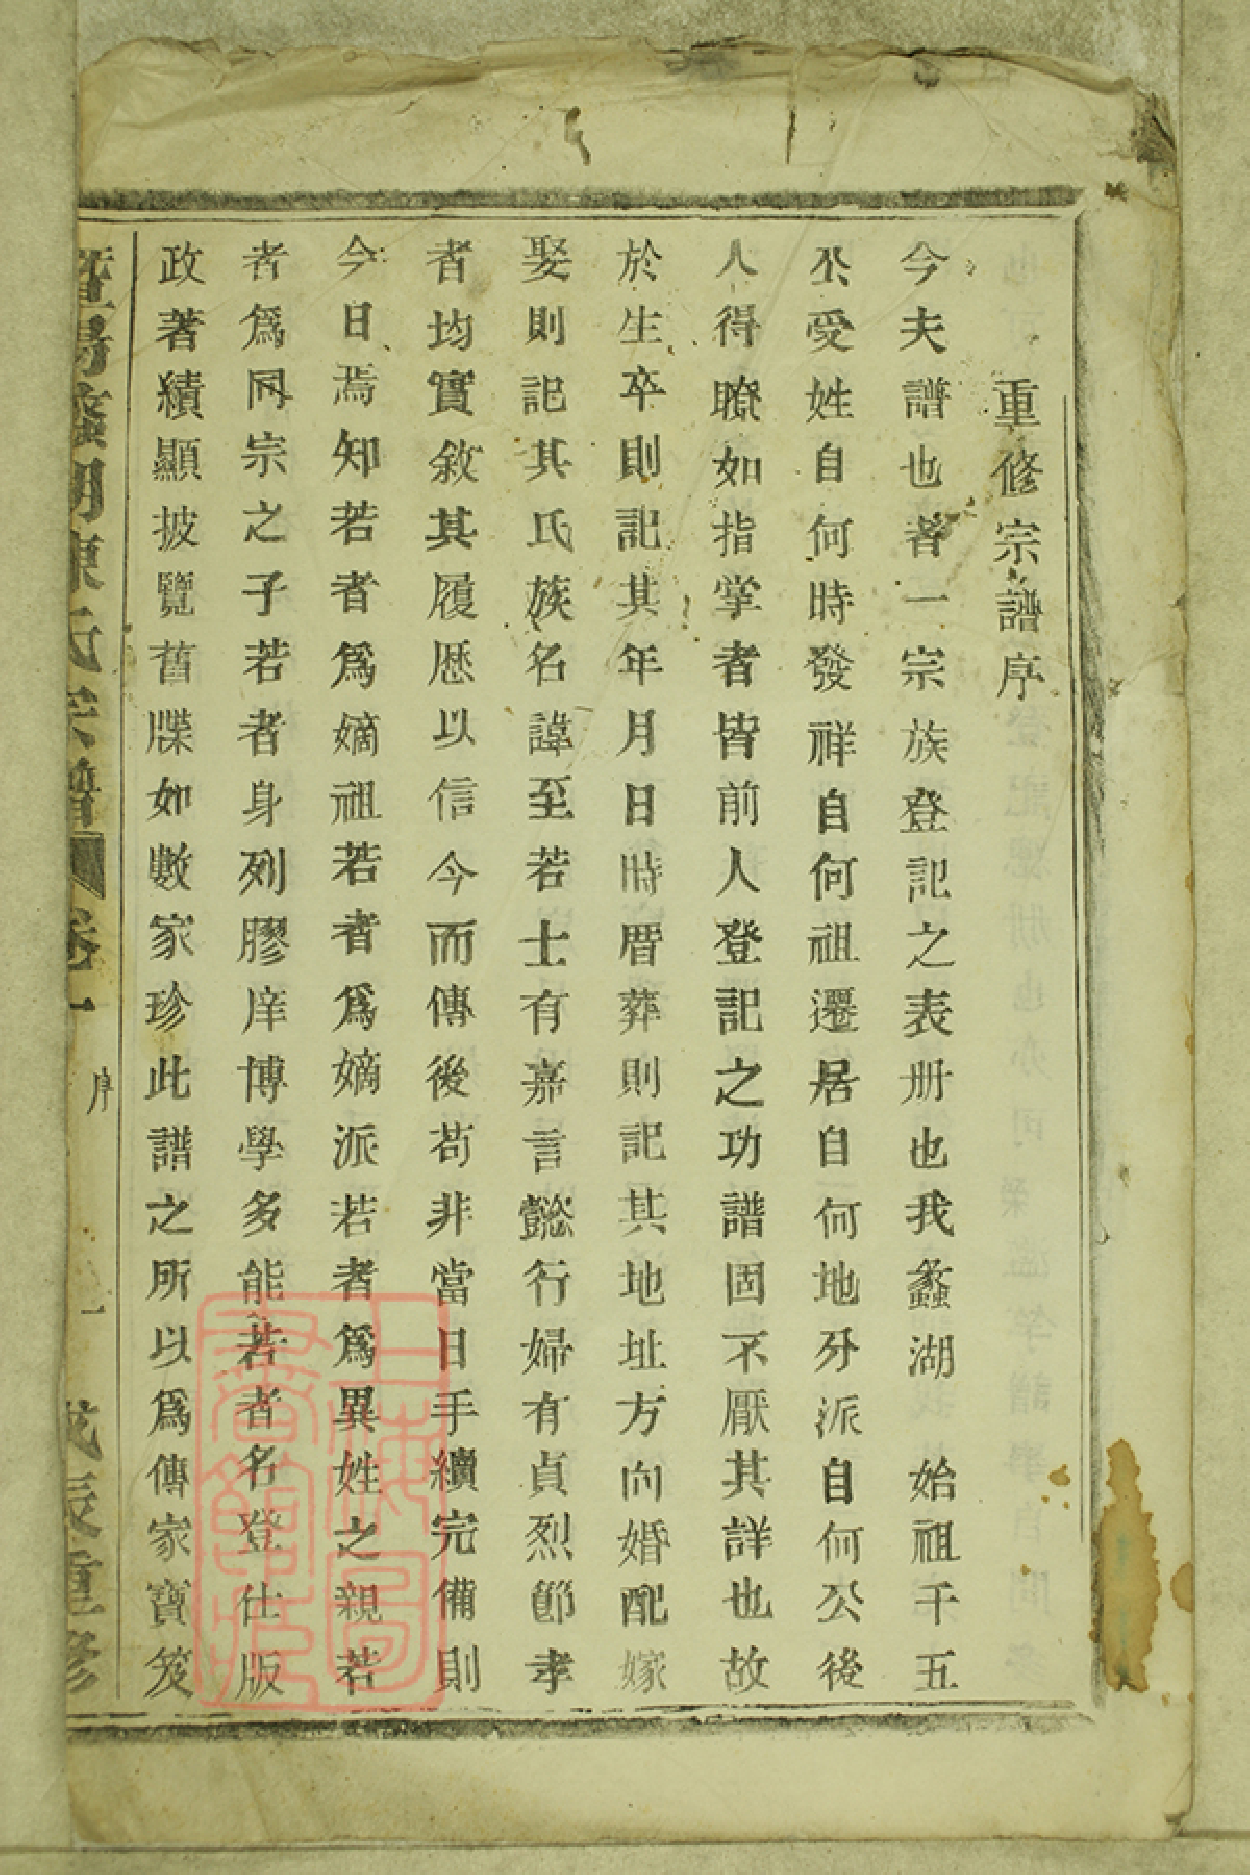 重修宗譜序
今夫譜也者一宗族登記之表册也我蠡湖　始祖千五
公受姓自何時發祥自何祖遷居自何地分派自何公後
人得瞭如指掌者皆前人登記之功譜固不厭其詳也故
於生卒則記其年月日時厝葬則記其地址方向婚配嫁
娶則記其氏族名諱至若士有嘉言懿行婦有貞烈節孝
者均實敘其履歷以信今而傳後苟非當日手續完備則
今日焉知若者爲嫡祖若者爲嫡派若者爲異姓之親若
者爲同宗之子若者身列膠庠博學多能若者名登仕版
政著績顯披覽舊牒如數家珍此譜之所以爲傳家寶笈
暨陽蠡湖陳氏宗譜 卷一 序 一 戊辰重修
上海圖書館藏